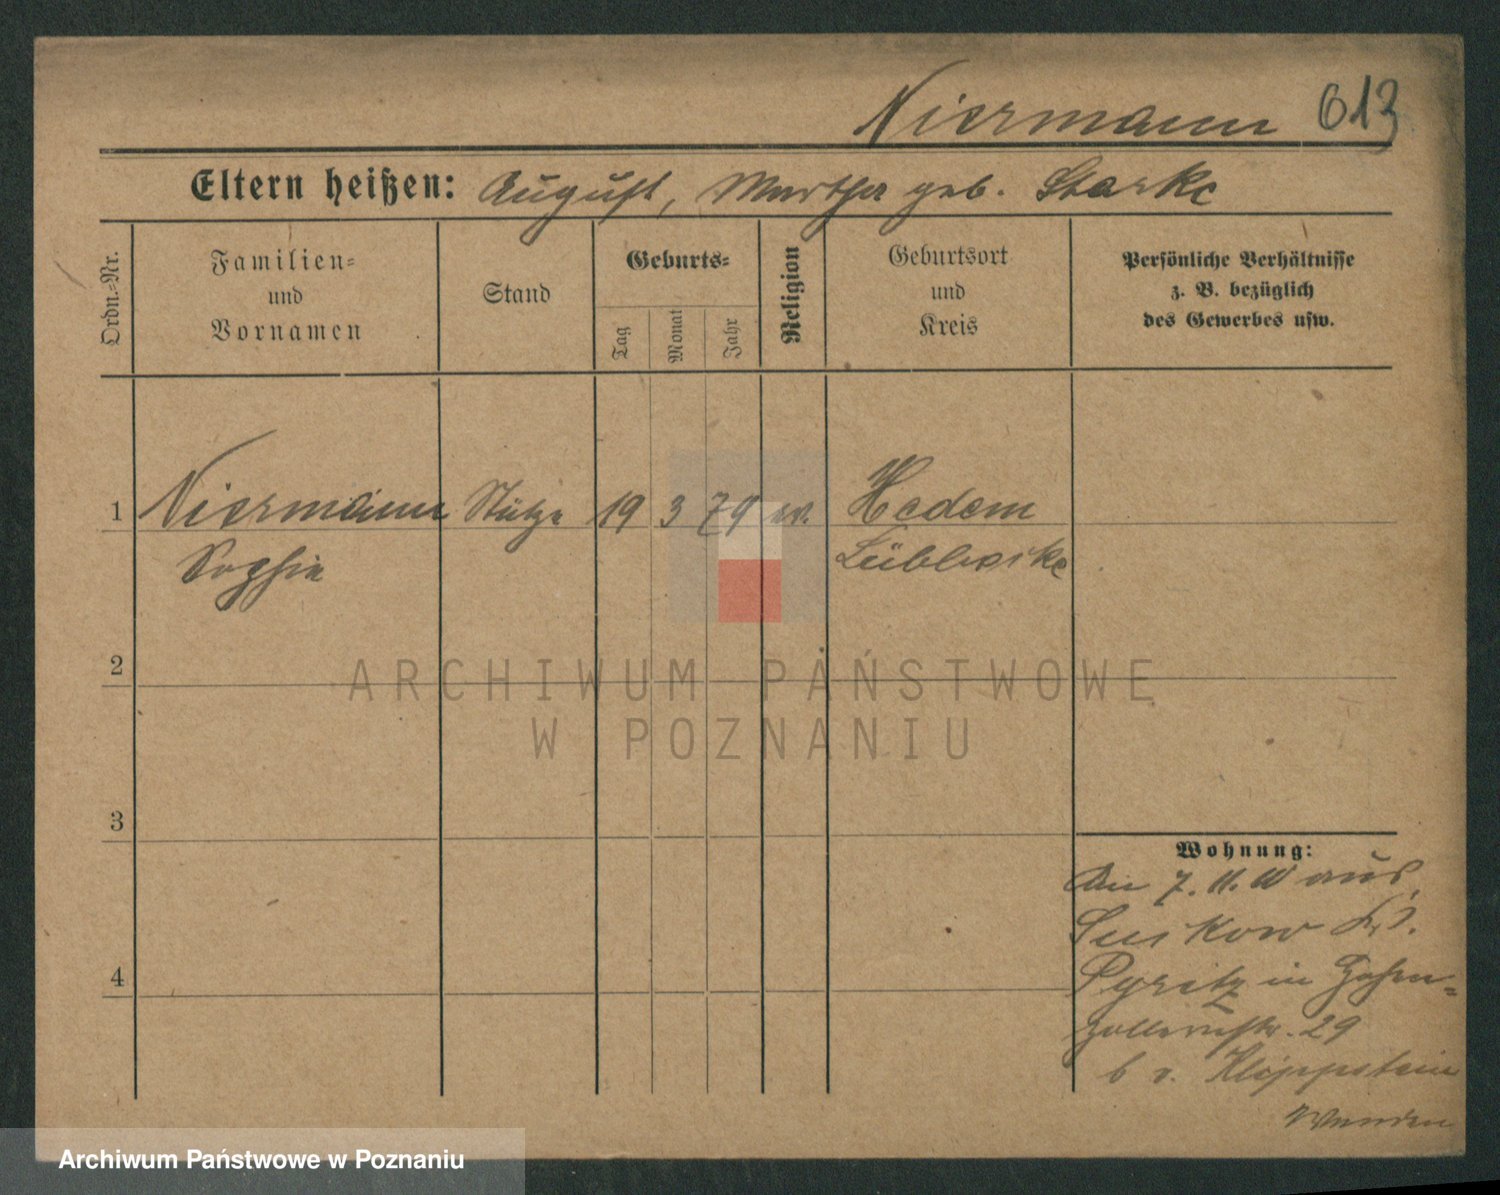 Niermann 613
Eltern heißen: August, Martha geb. Starke
Ordn.-Nr.
Familien-
und
Vornamen
Stand
Geburts-
Tag
Monat
Jahr
Religion
Geburtsort
und
Kreis
Persönliche Verhältnisse
z. B. bezüglich
des Gewerbes usw.
1 Niermann Stütze 19 3 79 ev. Hedem
Sophie Lübbecke
2
ARCHIWUM PAŃSTWOWE
W POZNANIU
3
Wohnung:
7. 11. 10 aus
4
Pyritz in Hohen-
zollernstr. 29
b v. Klöppstein
Wenden
Archiwum Państwowe w Poznaniu